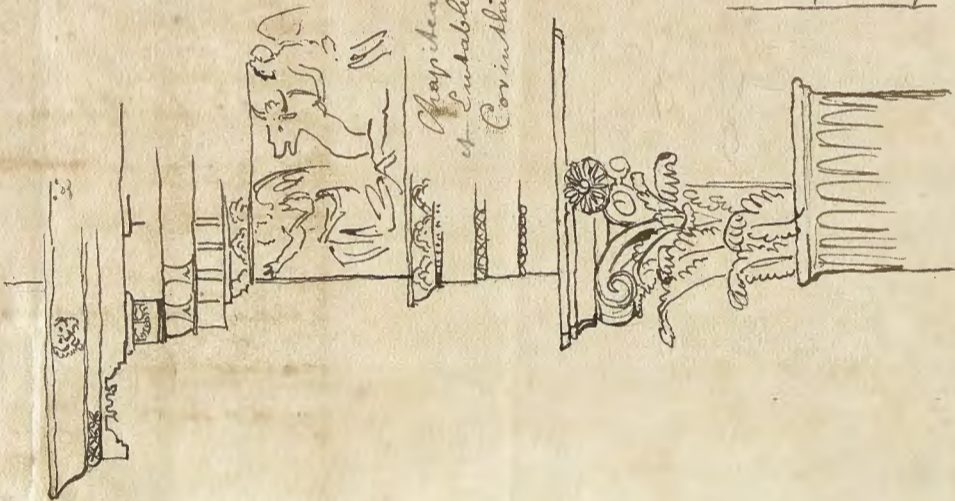 Chapitea
et Entable
Corinthi